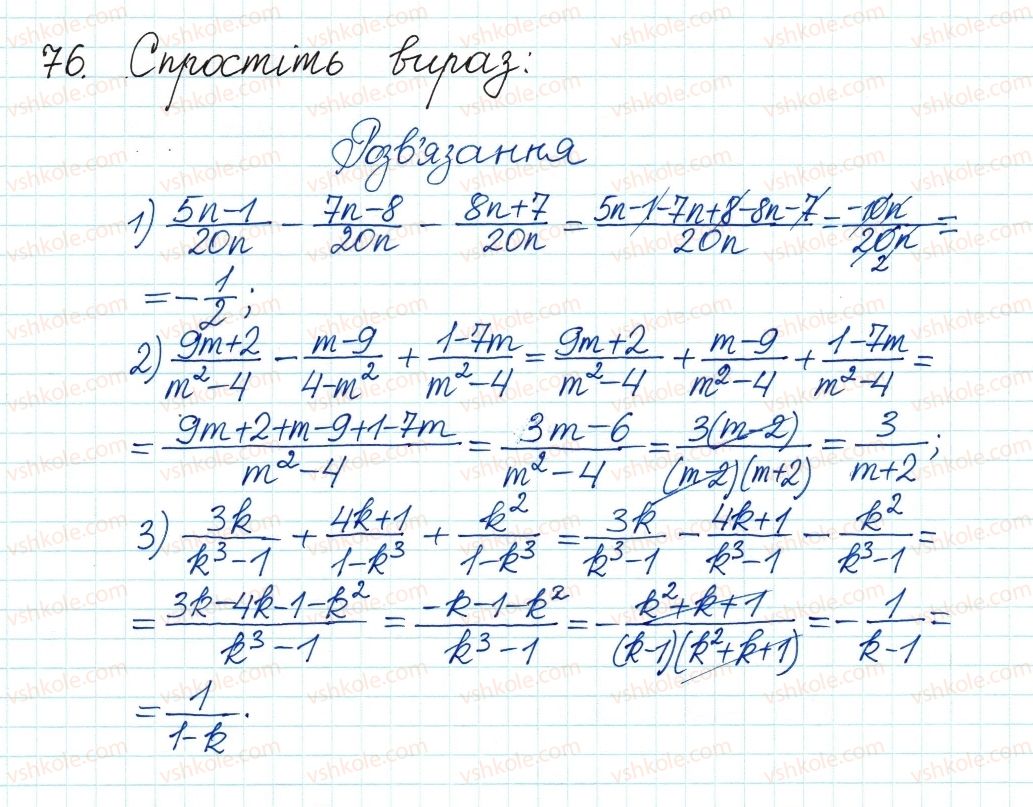 76. Спростіть вираз:
Розв'язання
1) (5n-1)/(20n) - (7n-8)/(20n) - (8n+7)/(20n) = (5n-1-7n+8-8n-7)/(20n) = (-10n)/(20n) =
2
= -1/2;
2) (9m+2)/(m²-4) - (m-9)/(4-m²) + (1-7m)/(m²-4) = (9m+2)/(m²-4) + (m-9)/(m²-4) + (1-7m)/(m²-4) =
= (9m+2+m-9+1-7m)/(m²-4) = (3m-6)/(m²-4) = 3(m-2)/((m-2)(m+2)) = 3/(m+2);
3) 3k/(k³-1) + (4k+1)/(1-k³) + k²/(1-k³) = 3k/(k³-1) - (4k+1)/(k³-1) - k²/(k³-1) =
= (3k-4k-1-k²)/(k³-1) = (-k-1-k²)/(k³-1) = -(k²+k+1)/((k-1)(k²+k+1)) = -1/(k-1) =
= 1/(1-k).